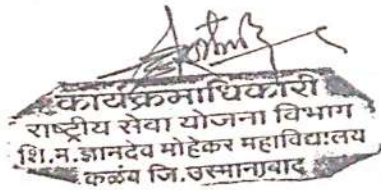 कार्यक्रमाधिकारी
राष्ट्रीय सेवा योजना विभाग
शि.म.ज्ञानदेव मोहेकर महाविद्यालय
कळंब जि.उस्मानाबाद